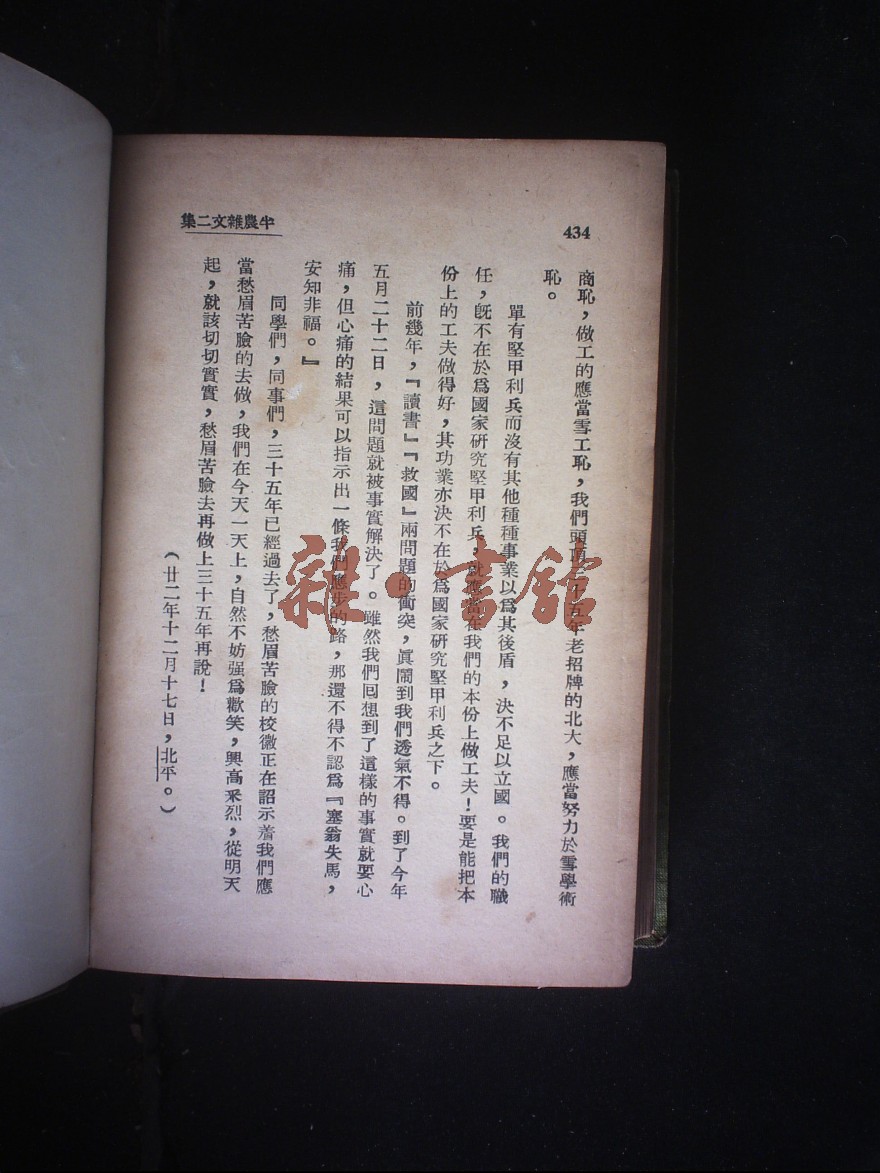 434
半農雜文二集
商恥，做工的應當雪工恥，我們頭頂三十五年老招牌的北大，應當努力於雪學術
恥。
單有堅甲利兵而沒有其他種種事業以爲其後盾，決不足以立國。我們的職
任，旣不在於爲國家研究堅甲利兵，就應當在我們的本份上做工夫！要是能把本
份上的工夫做得好，其功業亦決不在於爲國家研究堅甲利兵之下。
前幾年，『讀書』『救國』兩問題的衝突，眞鬧到我們透氣不得。到了今年
五月二十二日，這問題就被事實解決了。雖然我們囘想到了這樣的事實就要心
痛，但心痛的結果可以指示出一條我們應步的路，那還不得不認爲『塞翁失馬，
安知非福。』
同學們，同事們，三十五年已經過去了，愁眉苦臉的校徽正在詔示着我們應
當愁眉苦臉的去做，我們在今天一天上，自然不妨强爲歡笑，興高釆烈，從明天
起，就該切切實實，愁眉苦臉去再做上三十五年再說！
（廿二年十二月十七日，北平。）
雜·書館